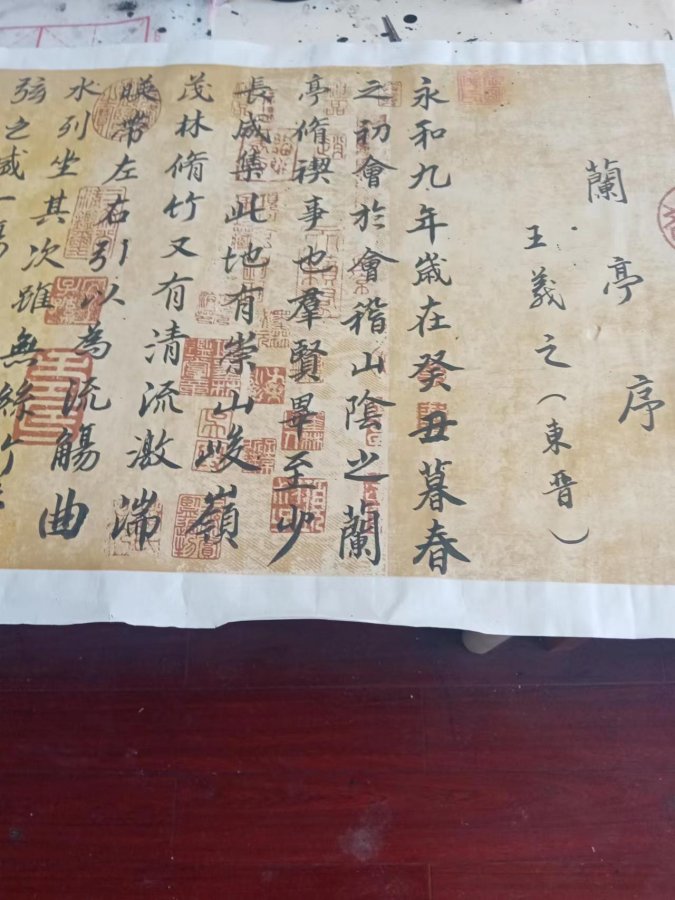 蘭亭序
王羲之（東晉）
永和九年歲在癸丑暮春
之初會於會稽山陰之蘭
亭脩禊事也羣賢畢至少
長咸集此地有崇山峻嶺
茂林脩竹又有清流激湍
暎帶左右引以為流觴曲
水列坐其次雖無絲竹
弦之盛一